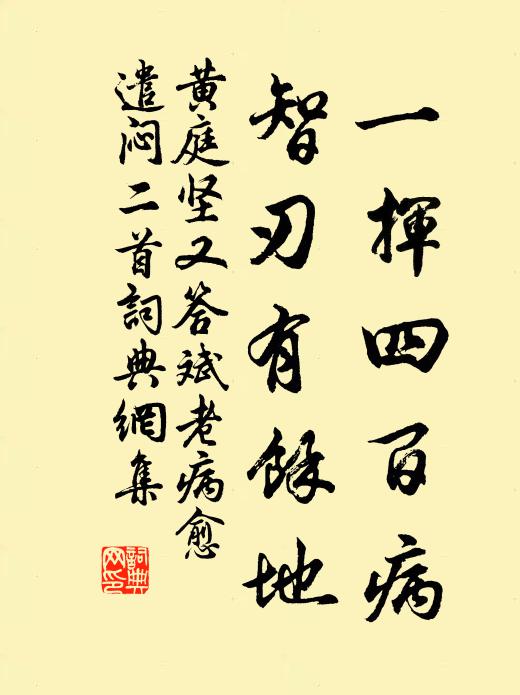 一揮四百病
智刃有餘地
黄庭坚又答斌老病愈
遣闷二首詞典網集
詞典
网印